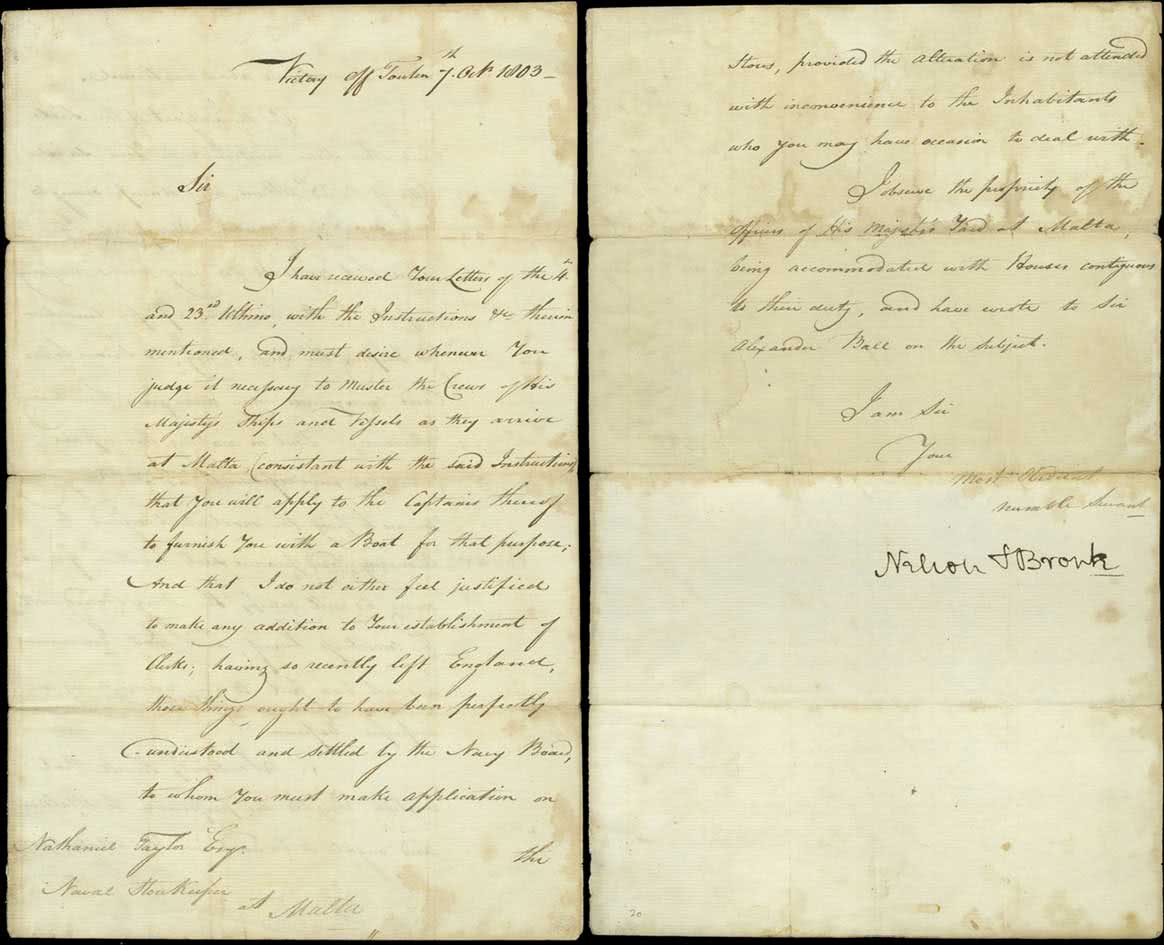 Victory off Toulon 7th. Octr. 1803 —
Sir
I have received Your Letters of the 4th
and 23rd. Ultimo, with the Instructions &c therein
mentioned, and must desire whenever You
judge it necessary to Muster the Crews of His
Majesty's Ships and Vessels as they arrive
at Malta (consistant with the said Instructions)
that You will apply to the Captains thereof
to furnish You with a Boat for that purpose;
And that I do not either feel justified
to make any addition to Your establishment of
Clerks; having so recently left England,
those things ought to have been perfectly
understood and settled by the Navy Board,
to whom You must make application on
Nathaniel Taylor Esqr.
the
Naval Storekeeper
at Malta
Stores, provided the alteration is not attended
with inconvenience to the Inhabitants
who You may have occasion to deal with.
I observe the propriety of the
Officers of His Majesty's Yard at Malta,
being accommodated with Houses contiguous
to their duty, and have wrote to Sir
Alexander Ball on the subject.
I am Sir
Your
Most Obedient
Humble Servant
Nelson & Bronte
20